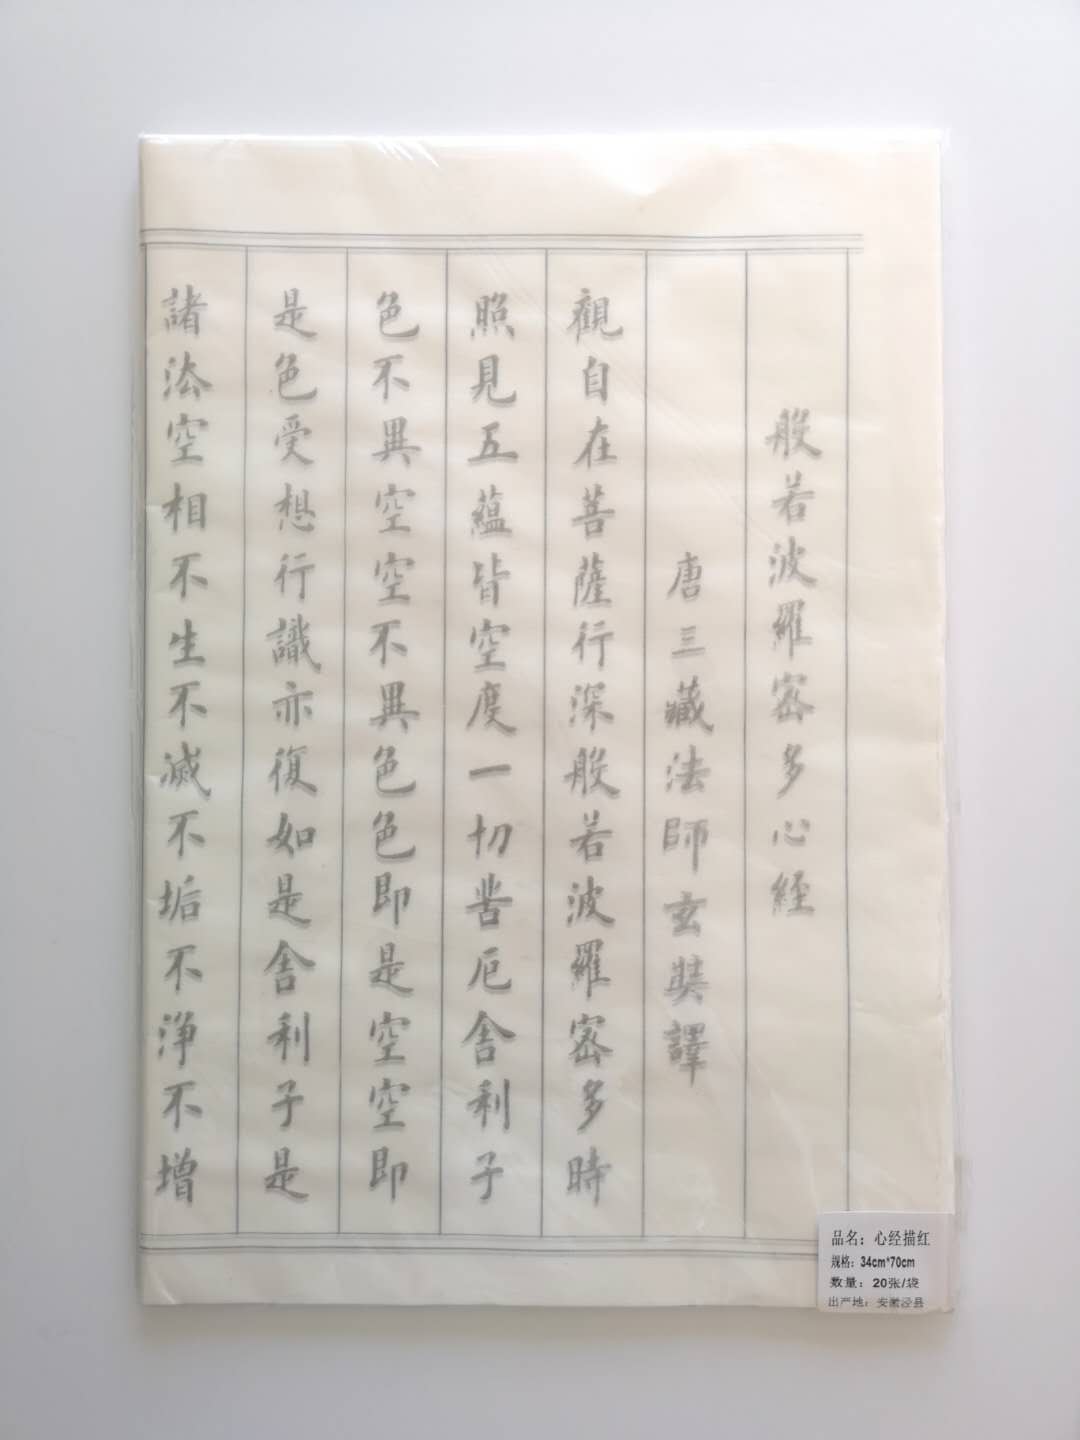 般若波羅密多心經
唐三藏法師玄奘譯
觀自在菩薩行深般若波羅密多時
照見五蘊皆空度一切苦厄舍利子
色不異空空不異色色即是空空即
是色受想行識亦復如是舍利子是
諸法空相不生不滅不垢不淨不增
品名：心经描红
规格：34cm*70cm
数量：20张/袋
出产地：安徽泾县